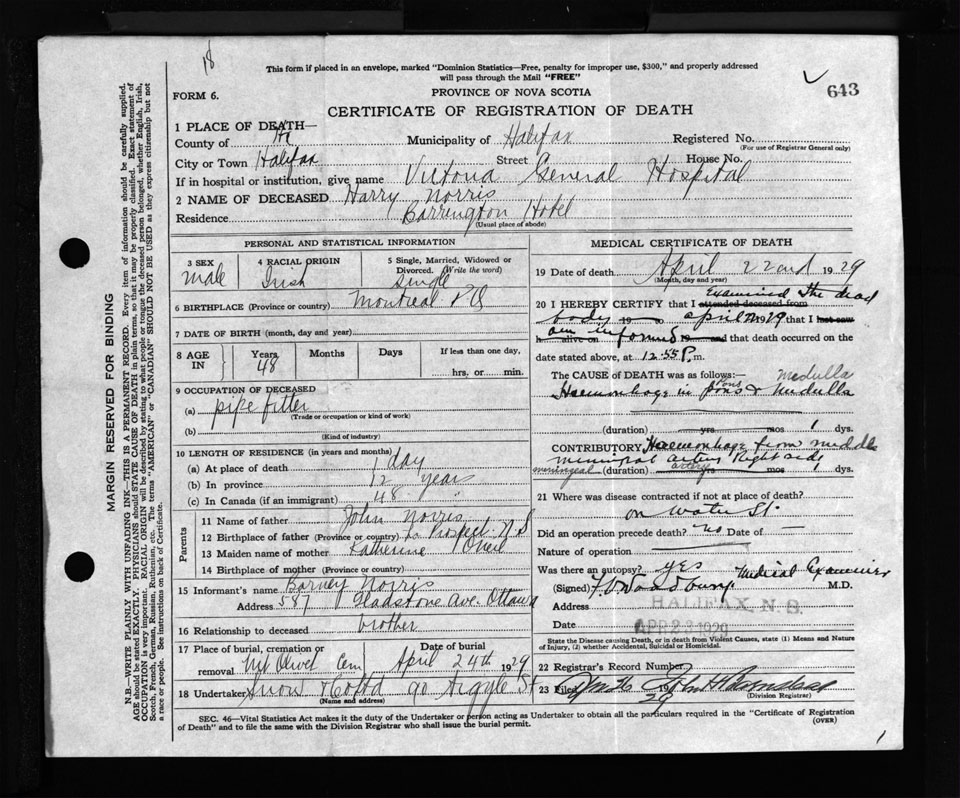 18
This form if placed in an envelope, marked "Dominion Statistics—Free, penalty for improper use, $300," and properly addressed
will pass through the Mail "FREE"
643
FORM 6.
PROVINCE OF NOVA SCOTIA
CERTIFICATE OF REGISTRATION OF DEATH
1 PLACE OF DEATH—
County of Hx Municipality of Halifax Registered No.
(For use of Registrar General only)
City or Town Halifax Street House No.
If in hospital or institution, give name Victoria General Hospital
2 NAME OF DECEASED Harry Norris
Residence Barrington Hotel
(Usual place of abode)
PERSONAL AND STATISTICAL INFORMATION
3 SEX Male
4 RACIAL ORIGIN Irish
5 Single, Married, Widowed or Divorced. (Write the word) Single
6 BIRTHPLACE (Province or country) Montreal P.Q
7 DATE OF BIRTH (month, day and year)
8 AGE IN Years 48 Months Days If less than one day,
hrs. or min.
9 OCCUPATION OF DECEASED
(a) pipe fitter
(Trade or occupation or kind of work)
(b)
(Kind of industry)
10 LENGTH OF RESIDENCE (in years and months)
(a) At place of death 1 day
(b) In province 12 years
(c) In Canada (if an immigrant) 48 "
Parents
11 Name of father John Norris
12 Birthplace of father (Province or country) Prospect N S
13 Maiden name of mother Katherine
14 Birthplace of mother (Province or country)
15 Informant's name Barney Norris
Address 587 Gladstone Ave. Ottawa
16 Relationship to deceased brother
17 Place of burial, cremation or removal Mt Olivet Cem Date of burial April 24th 1929
18 Undertaker Snow & Co Ltd 90 Argyle St
(Name and address)
MEDICAL CERTIFICATE OF DEATH
19 Date of death April 22nd 1929
(Month, day and year)
20 I HEREBY CERTIFY that I attended deceased from examined the dead
body 19 to april 22 1929 that I last saw
h alive on am informed 19 and that death occurred on the
date stated above, at 12.55 P. m.
The CAUSE OF DEATH was as follows:— Medulla
Haemorrhage in pons & medulla
pons
(duration) yrs mos 1 dys.
CONTRIBUTORY Haemorrhage from middle
meningeal artery Right side
meningeal (duration) artery yrs mos 1 dys.
21 Where was disease contracted if not at place of death?
on Water St.
Did an operation precede death? no Date of —
Nature of operation
Was there an autopsy? yes Medical Examiner
(Signed) M.D.
Address HALIFAX N.S.
Date APR 23 1929
State the Disease causing Death, or in death from Violent Causes, state (1) Means and Nature
of Injury, (2) whether Accidental, Suicidal or Homicidal.
22 Registrar's Record Number
23 Filed 1929
(Division Registrar)
SEC. 46—Vital Statistics Act makes it the duty of the Undertaker or person acting as Undertaker to obtain all the particulars required in the "Certificate of Registration
of Death" and to file the same with the Division Registrar who shall issue the burial permit.
(OVER)
1
MARGIN RESERVED FOR BINDING
N.B.—WRITE PLAINLY WITH UNFADING INK—THIS IS A PERMANENT RECORD. Every item of information should be carefully supplied.
AGE should be stated EXACTLY. PHYSICIANS should STATE CAUSE OF DEATH in plain terms, so that it may be properly classified. Exact statement of
OCCUPATION is very important. RACIAL ORIGIN will be described by stating to what people or tongue the deceased person belonged, whether English, Irish,
Scotch, French, German, Russian, Ruthenian, etc. The terms "AMERICAN" or "CANADIAN" SHOULD NOT BE USED as they express citizenship but not
a race or people. See instructions on back of Certificate.